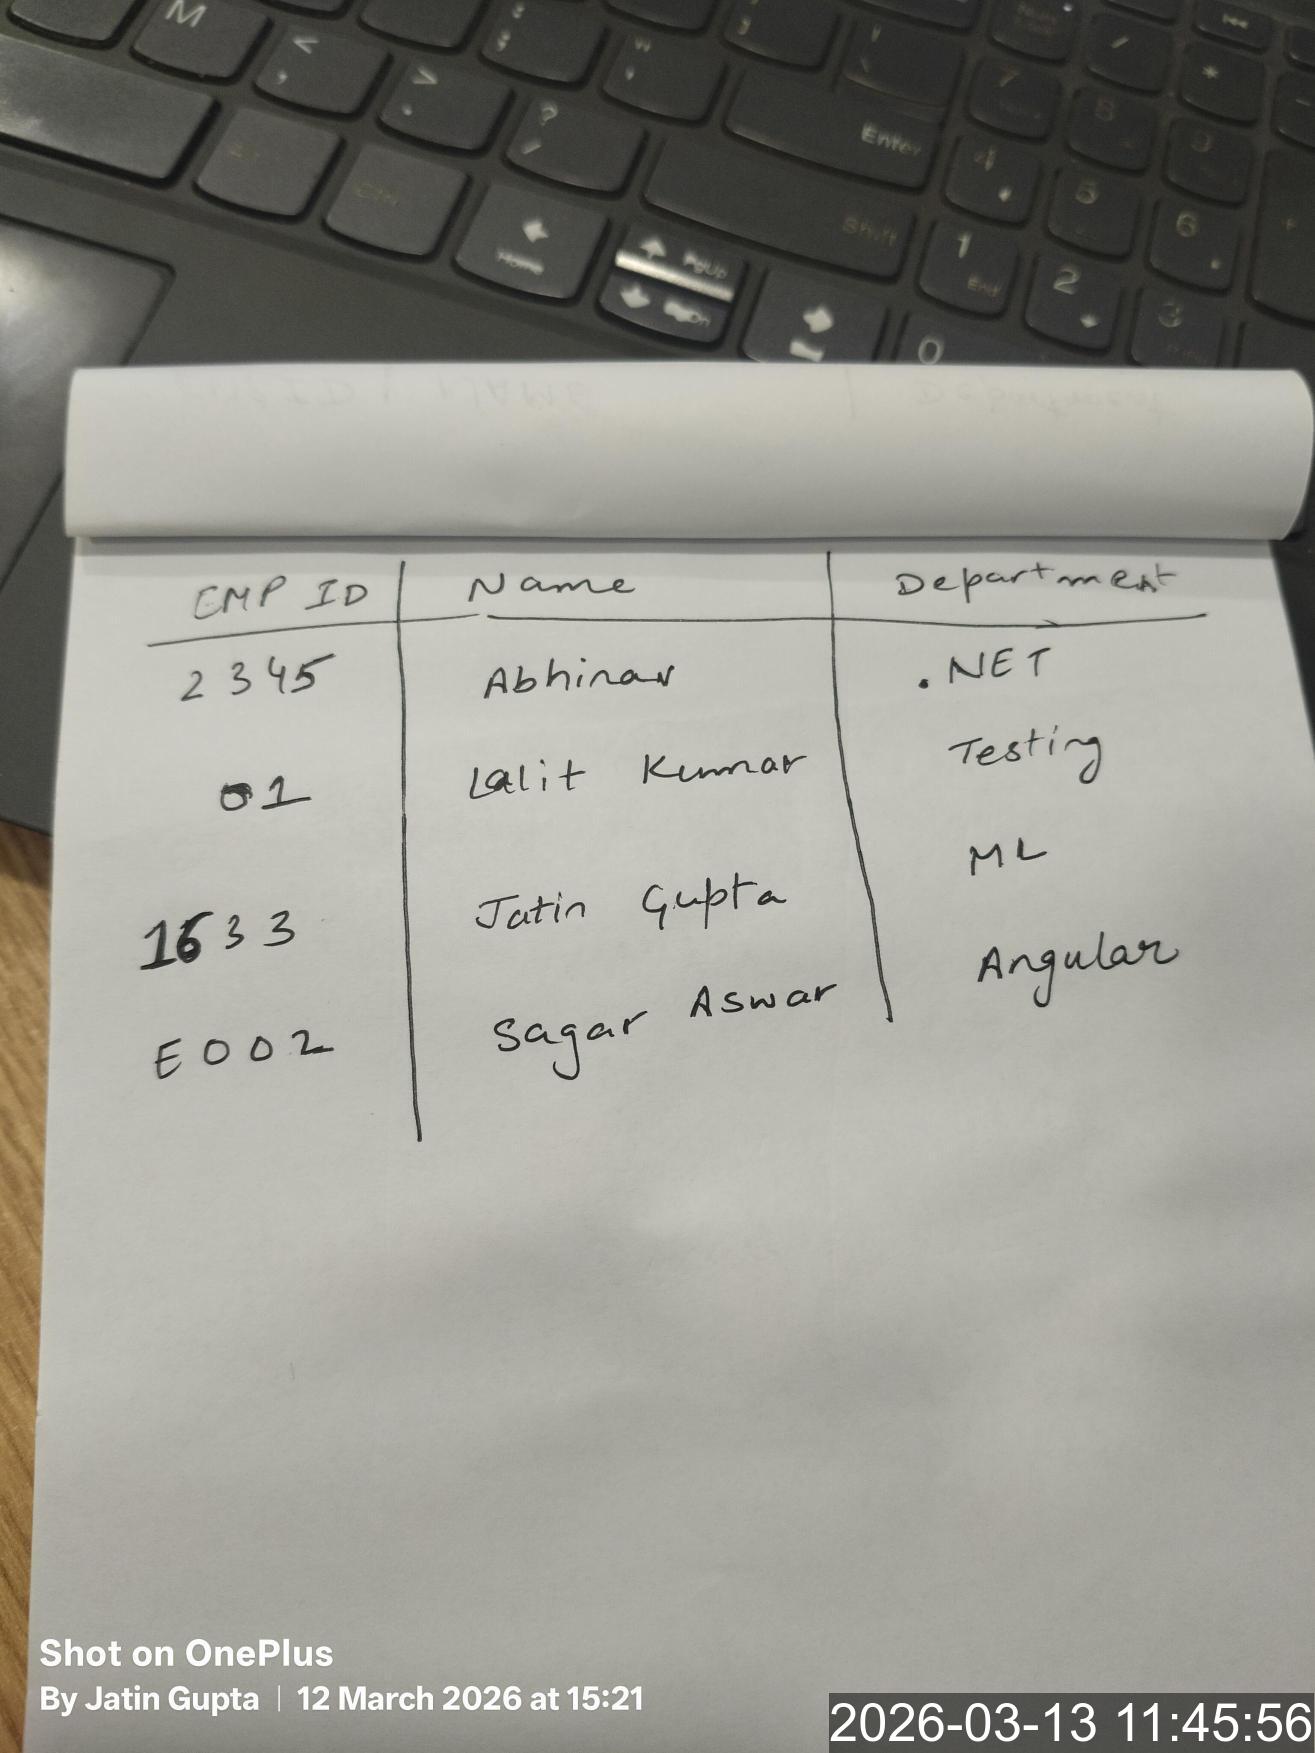 M
Enter
Shift
Home
PgUp
1 End
2
3
4
5
6
7
8
9
0
EMP ID Name Department
2345 Abhinav .NET
01 Lalit Kumar Testing
1633 Jatin Gupta ML
E002 Sagar Aswar Angular
Shot on OnePlus
By Jatin Gupta | 12 March 2026 at 15:21
2026-03-13 11:45:56